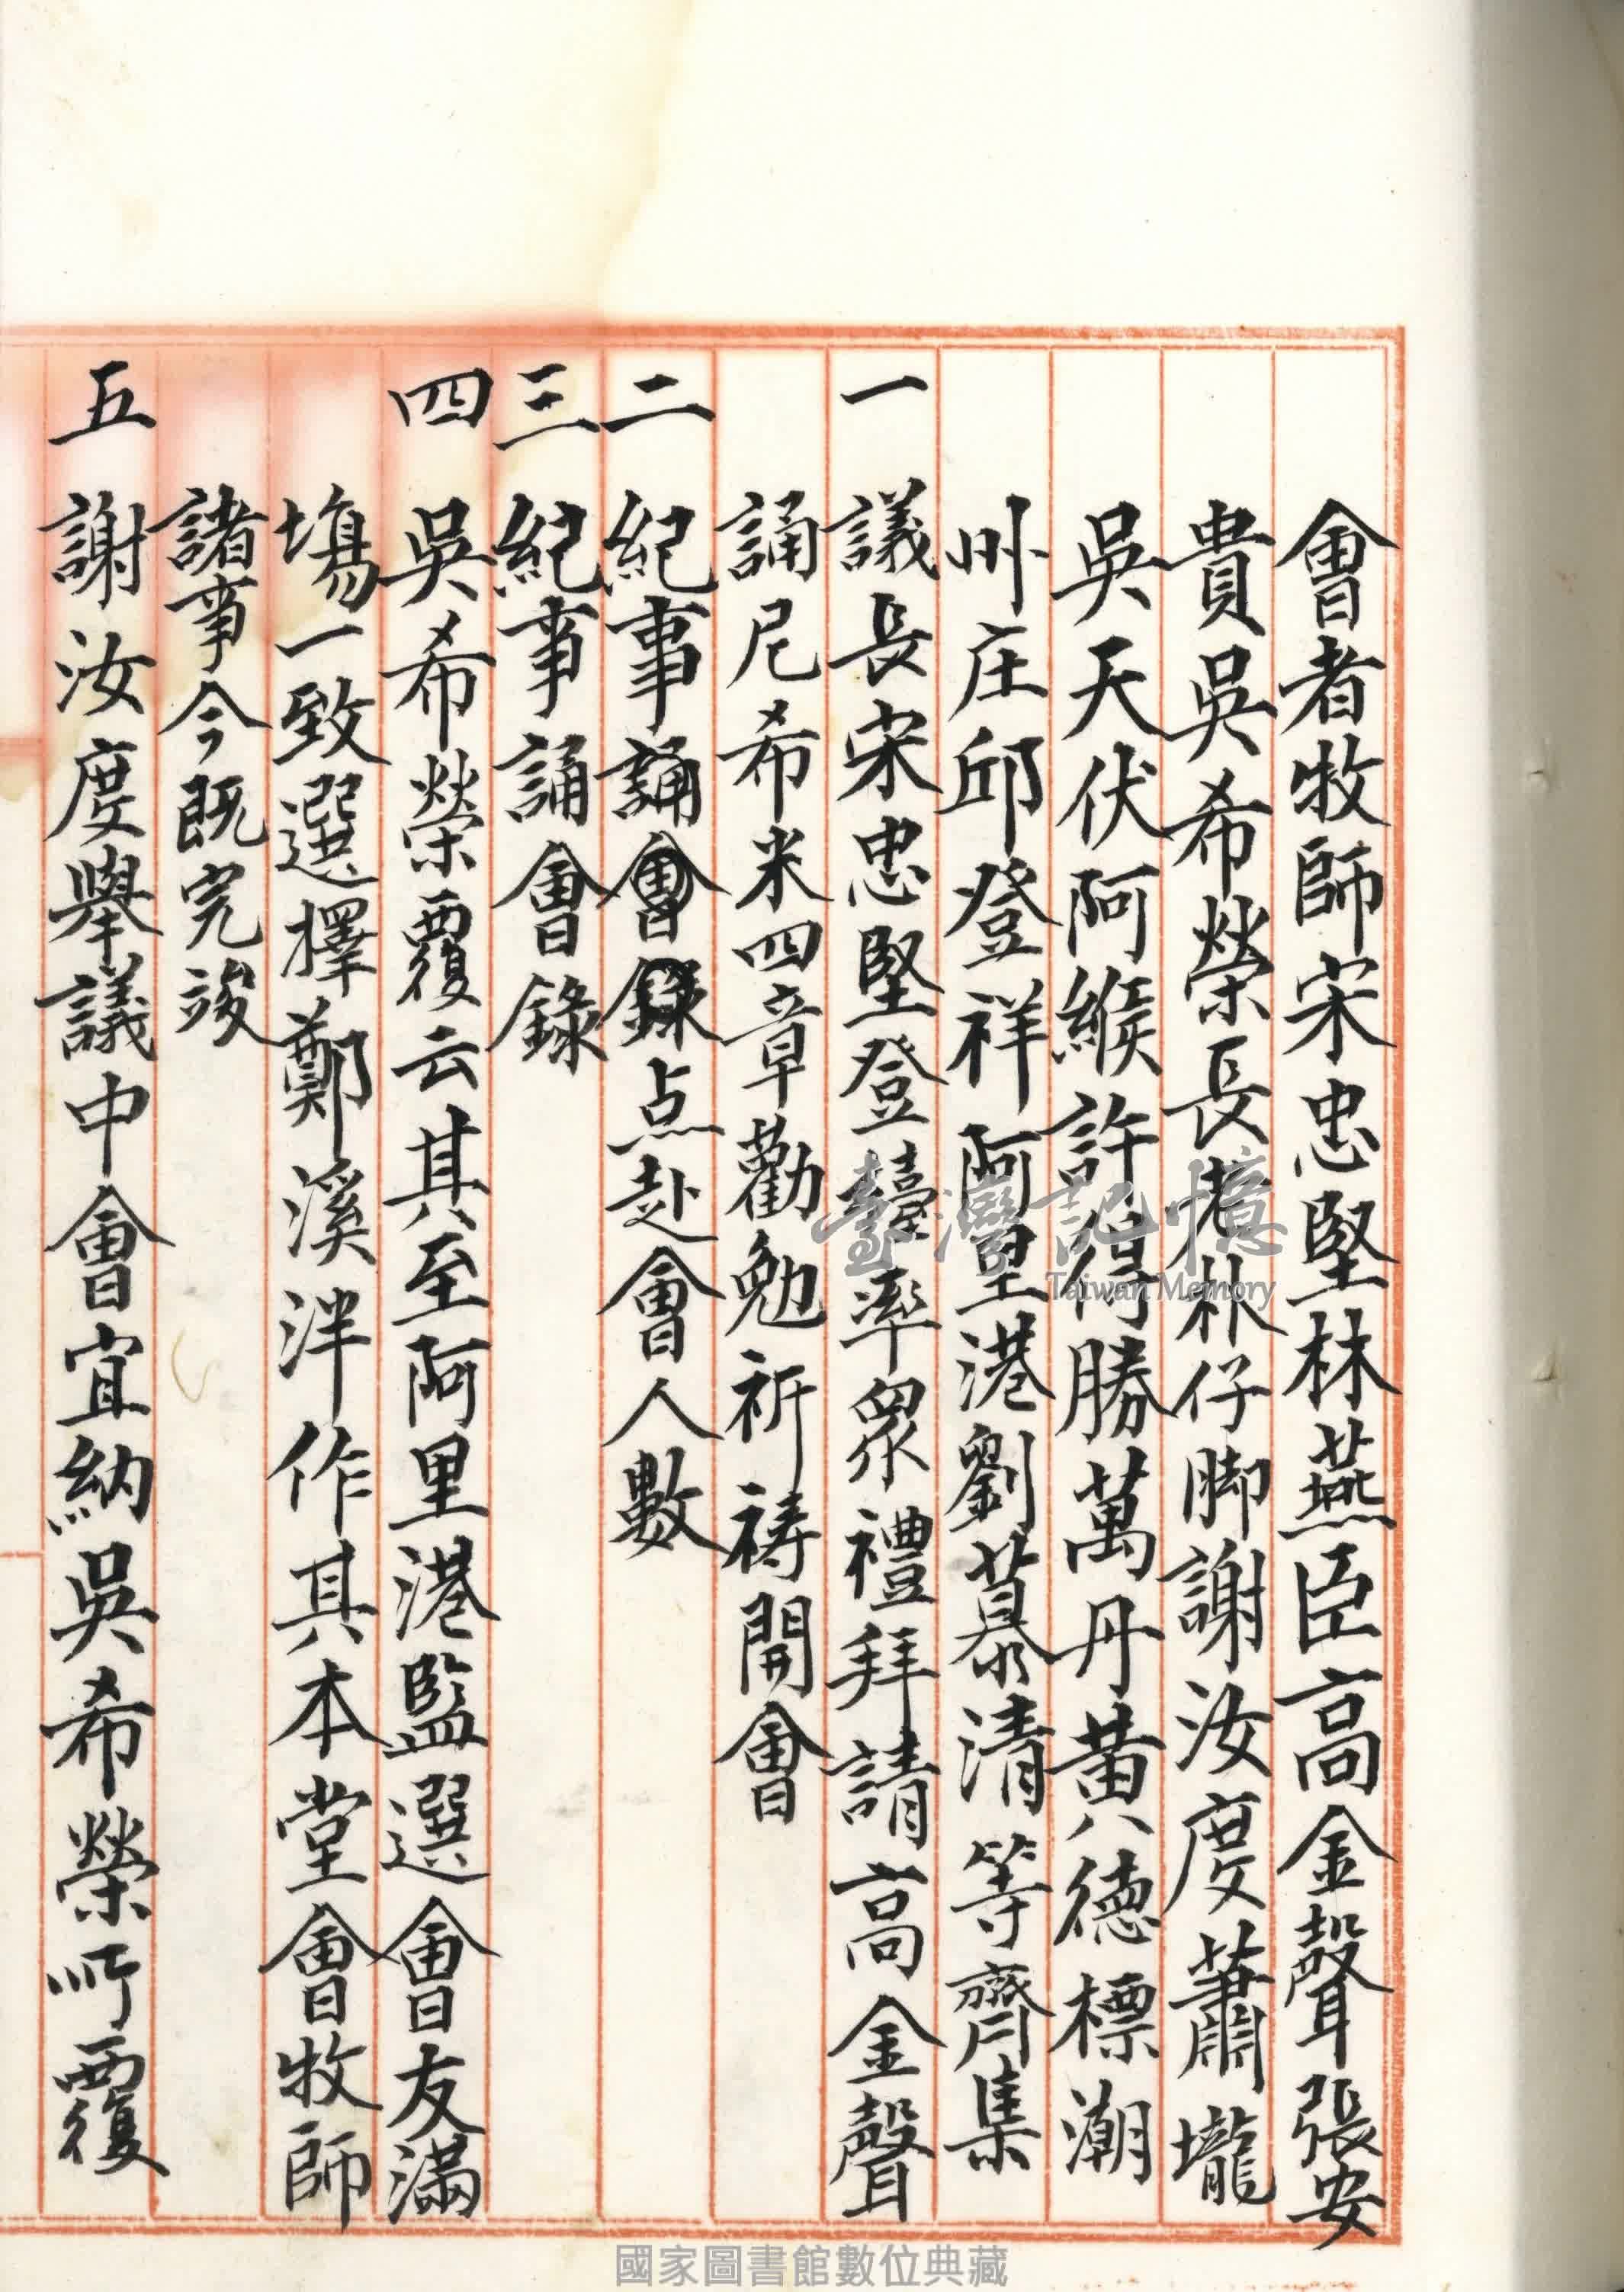 會者牧師宋忠堅林燕臣高金聲張安
貴吳希榮長老朴仔脚謝汝度蕭壠
吳天伏阿緱許得勝萬丹黃德標潮
州庄邱登祥阿里港劉慕清等齊集
一 議長宋忠堅登臺率眾禮拜請高金聲
誦尼希米四章勸勉祈禱開會
二 紀事誦會錄点赴會人數
三 紀事誦會錄
四 吳希榮覆云其至阿里港監選會友滿
塲一致選擇鄭溪泮作其本堂會牧師
諸事今既完竣
五 謝汝度舉議中會宜納吳希榮所覆
臺灣記憶
Taiwan Memory
國家圖書館數位典藏